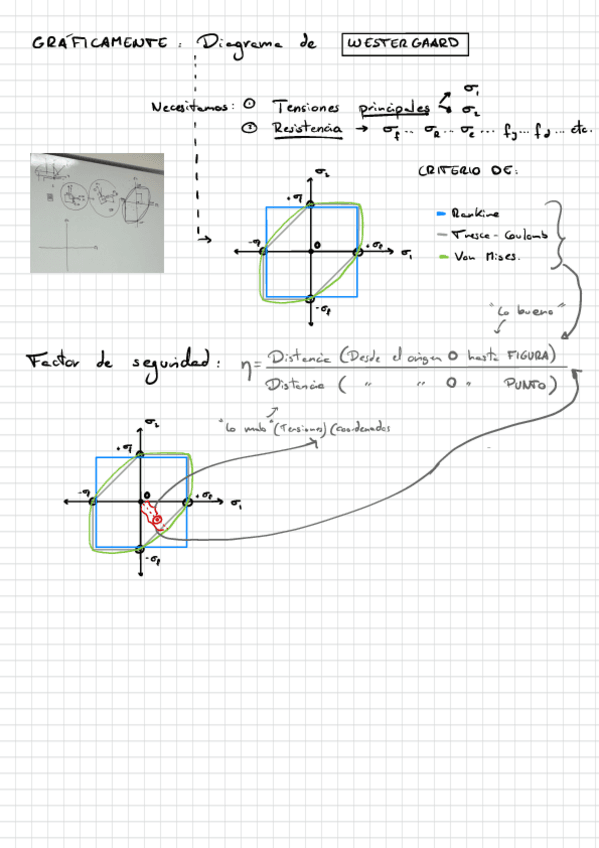 GRÁFICAMENTE: Diagrama de WESTERGAARD
Necesitamos: ① Tensiones principales σ₁ σ₂
② Resistencia → σf .. σR .. σe ... fy... fd ... etc.
CRITERIO DE:
Rankine
Tresca - Coulomb
Von Mises.
σ₂
+σf
-σf
0
+σf
σ₁
-σf
"Lo bueno"
Factor de seguridad: η = Distancia (Desde el origen O hasta FIGURA)
Distancia ( " " O " PUNTO)
"Lo malo" (Tensiones) (coordenadas
σ₂
+σf
-σf
0
+σf
σ₁
-σf